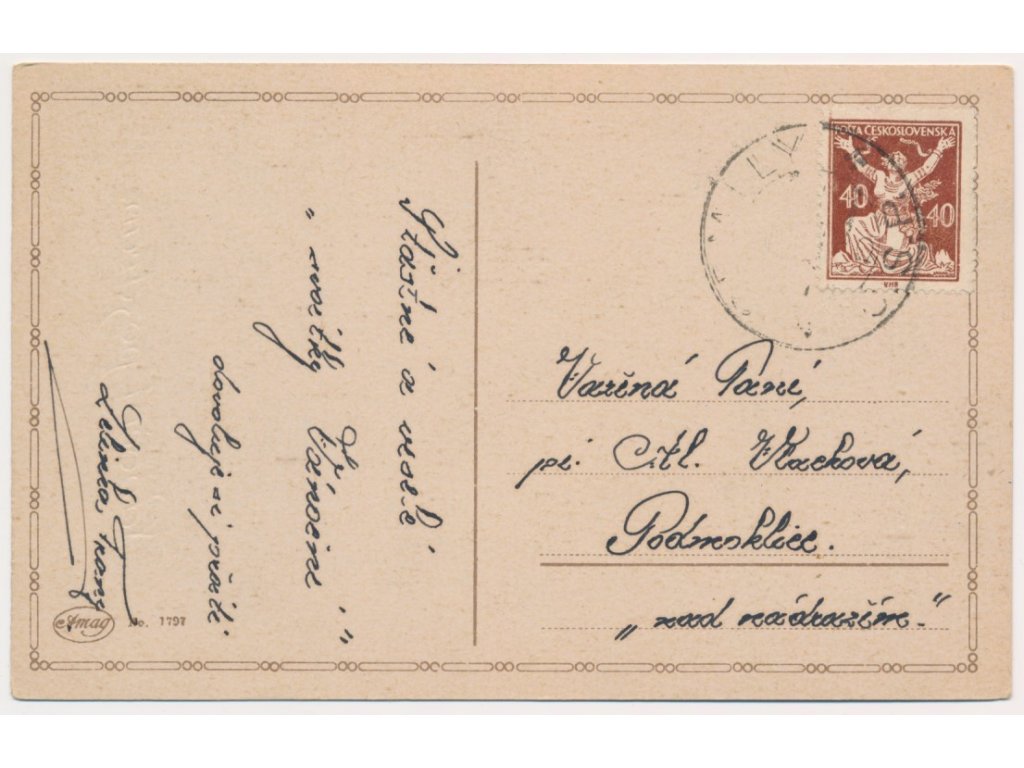 Šťastné a veselé
„svátky Vánoční"
dovoluje si přáti.
Franz
Amag No. 1797
POŠTA ČESKOSLOVENSKÁ
40 40
Vážená Paní,
pí. Ctl. Vlachová,
Podmoklice.
„nad nádražím."